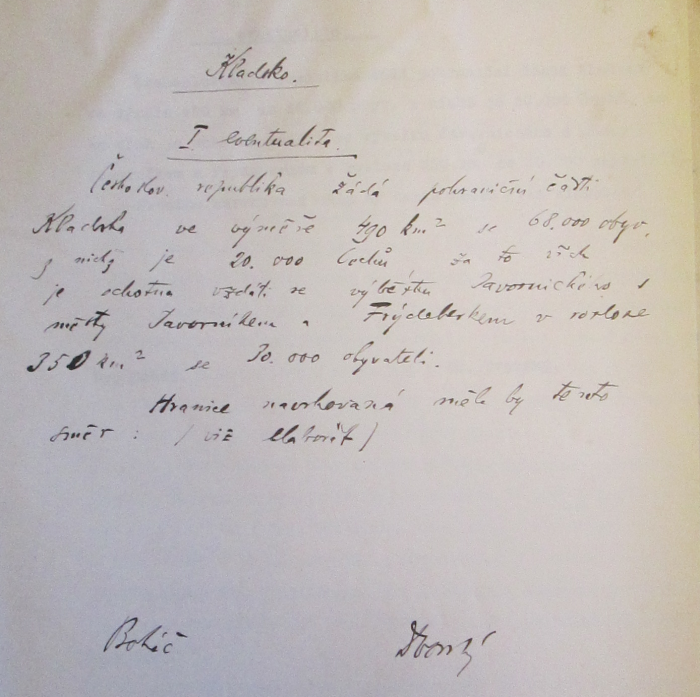 Kladsko.
I. eventualita.
Českoslov. republika žádá pohraniční části
Kladska ve výměře 490 km² se 68.000 obyv.
z nichž je 20.000 Čechů za to
je ochotna vzdáti se výběžku Javornického s
městy Javorníkem a Frýdeberkem v rozloze
350 km² se 30.000 obyvateli.
Hranice navrhovaná měla by tento
směr : (viz elaborát)